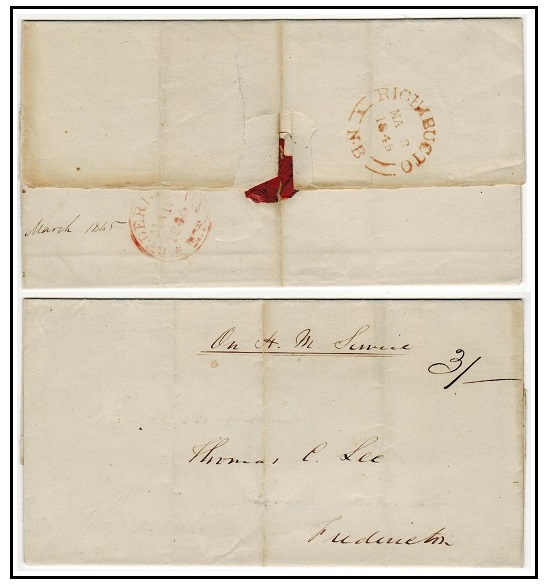 RICHIBUCTO
MA
1845
N.B
March 1845
FREDERI
1845
On H. M Service
3/
Thomas C. Lee
Fredericton